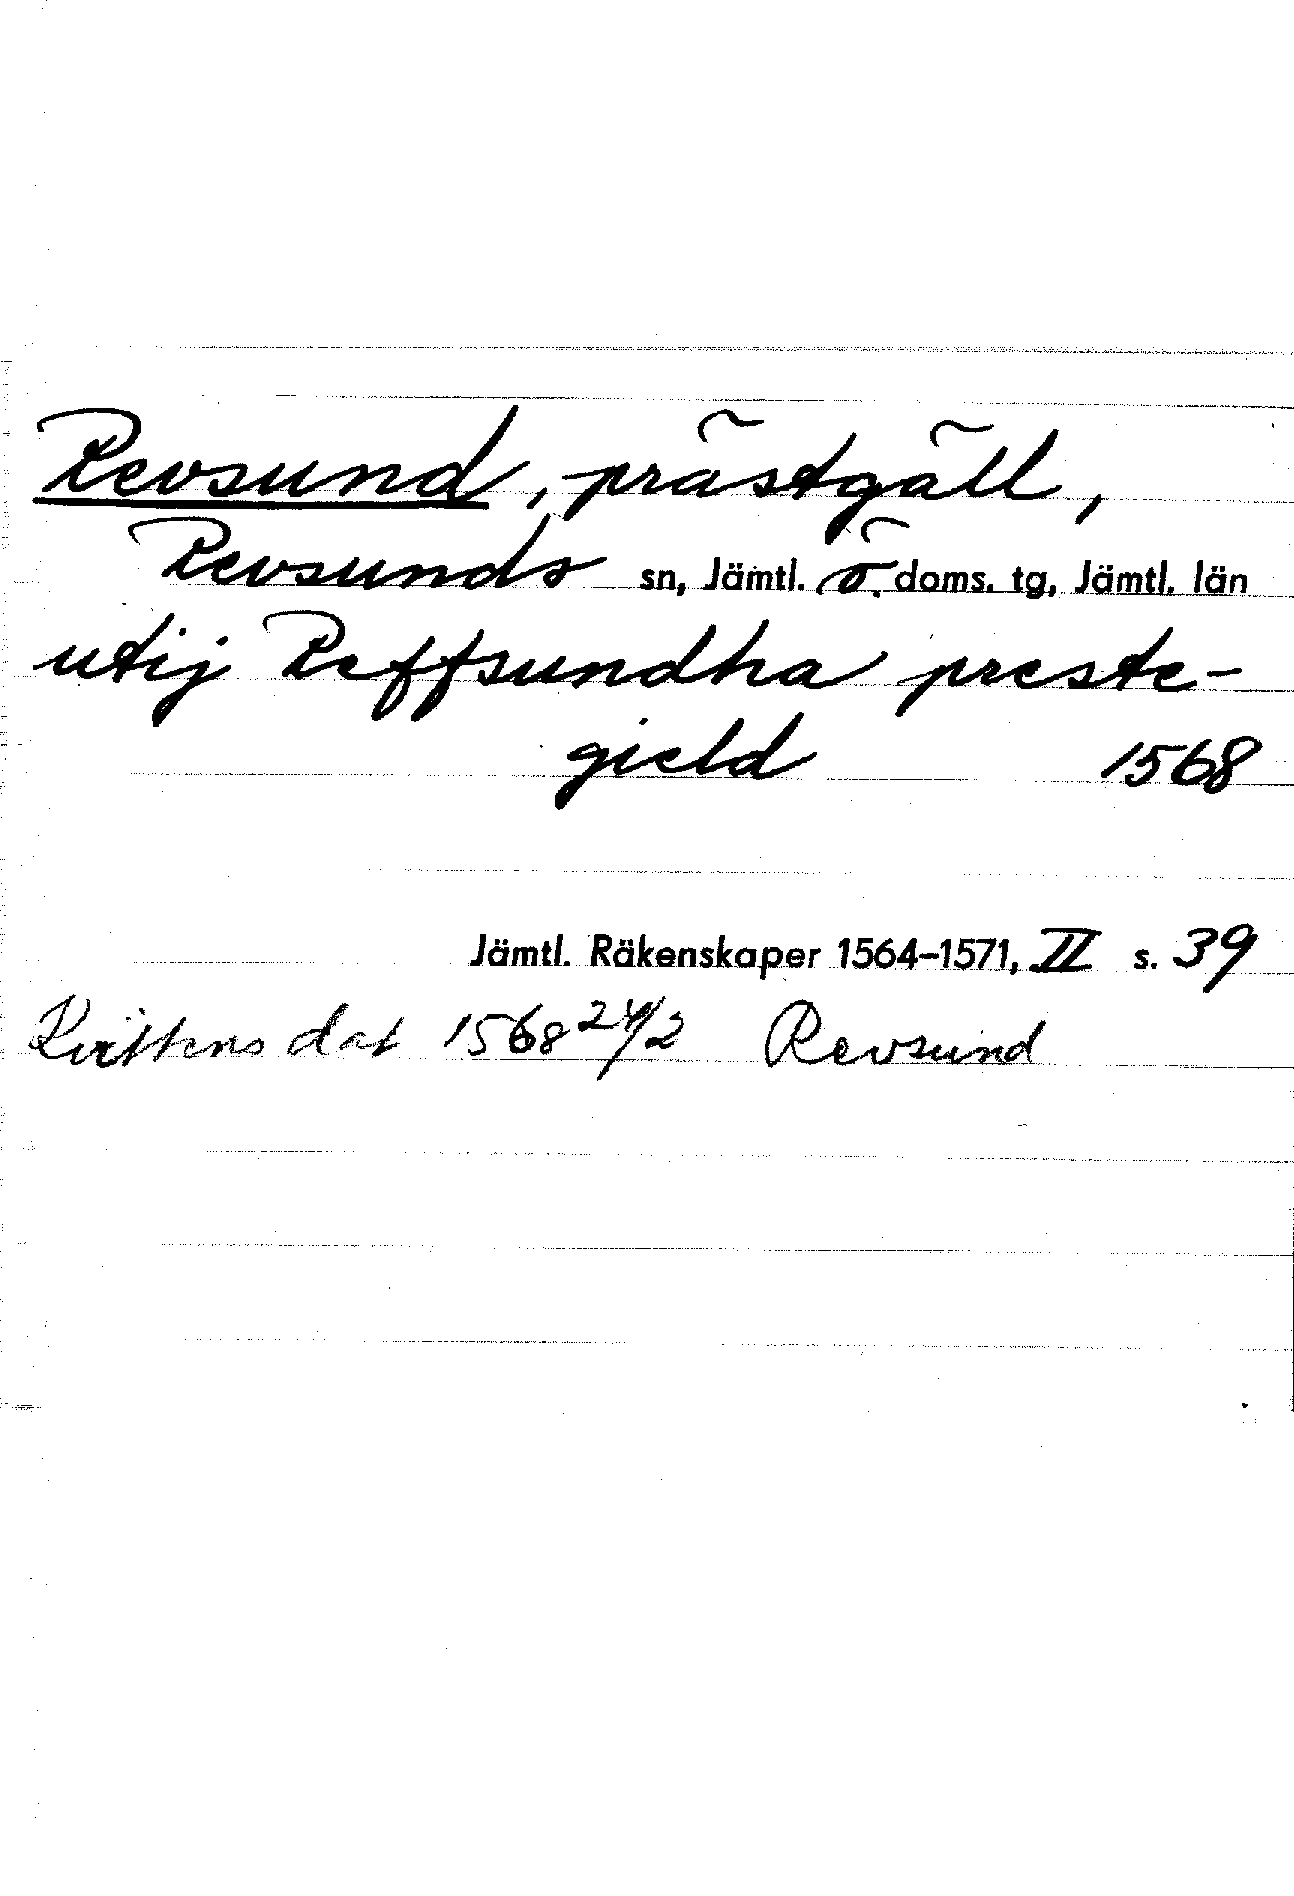 Revsund, prästgäll,
Revsunds sn, Jämtl. ö. doms. tg, Jämtl. län
utij Reffsundha preste-
gield 1568
Jämtl. Räkenskaper 1564–1571, II s. 39
Kvittens dat 1568 24/2 Revsund